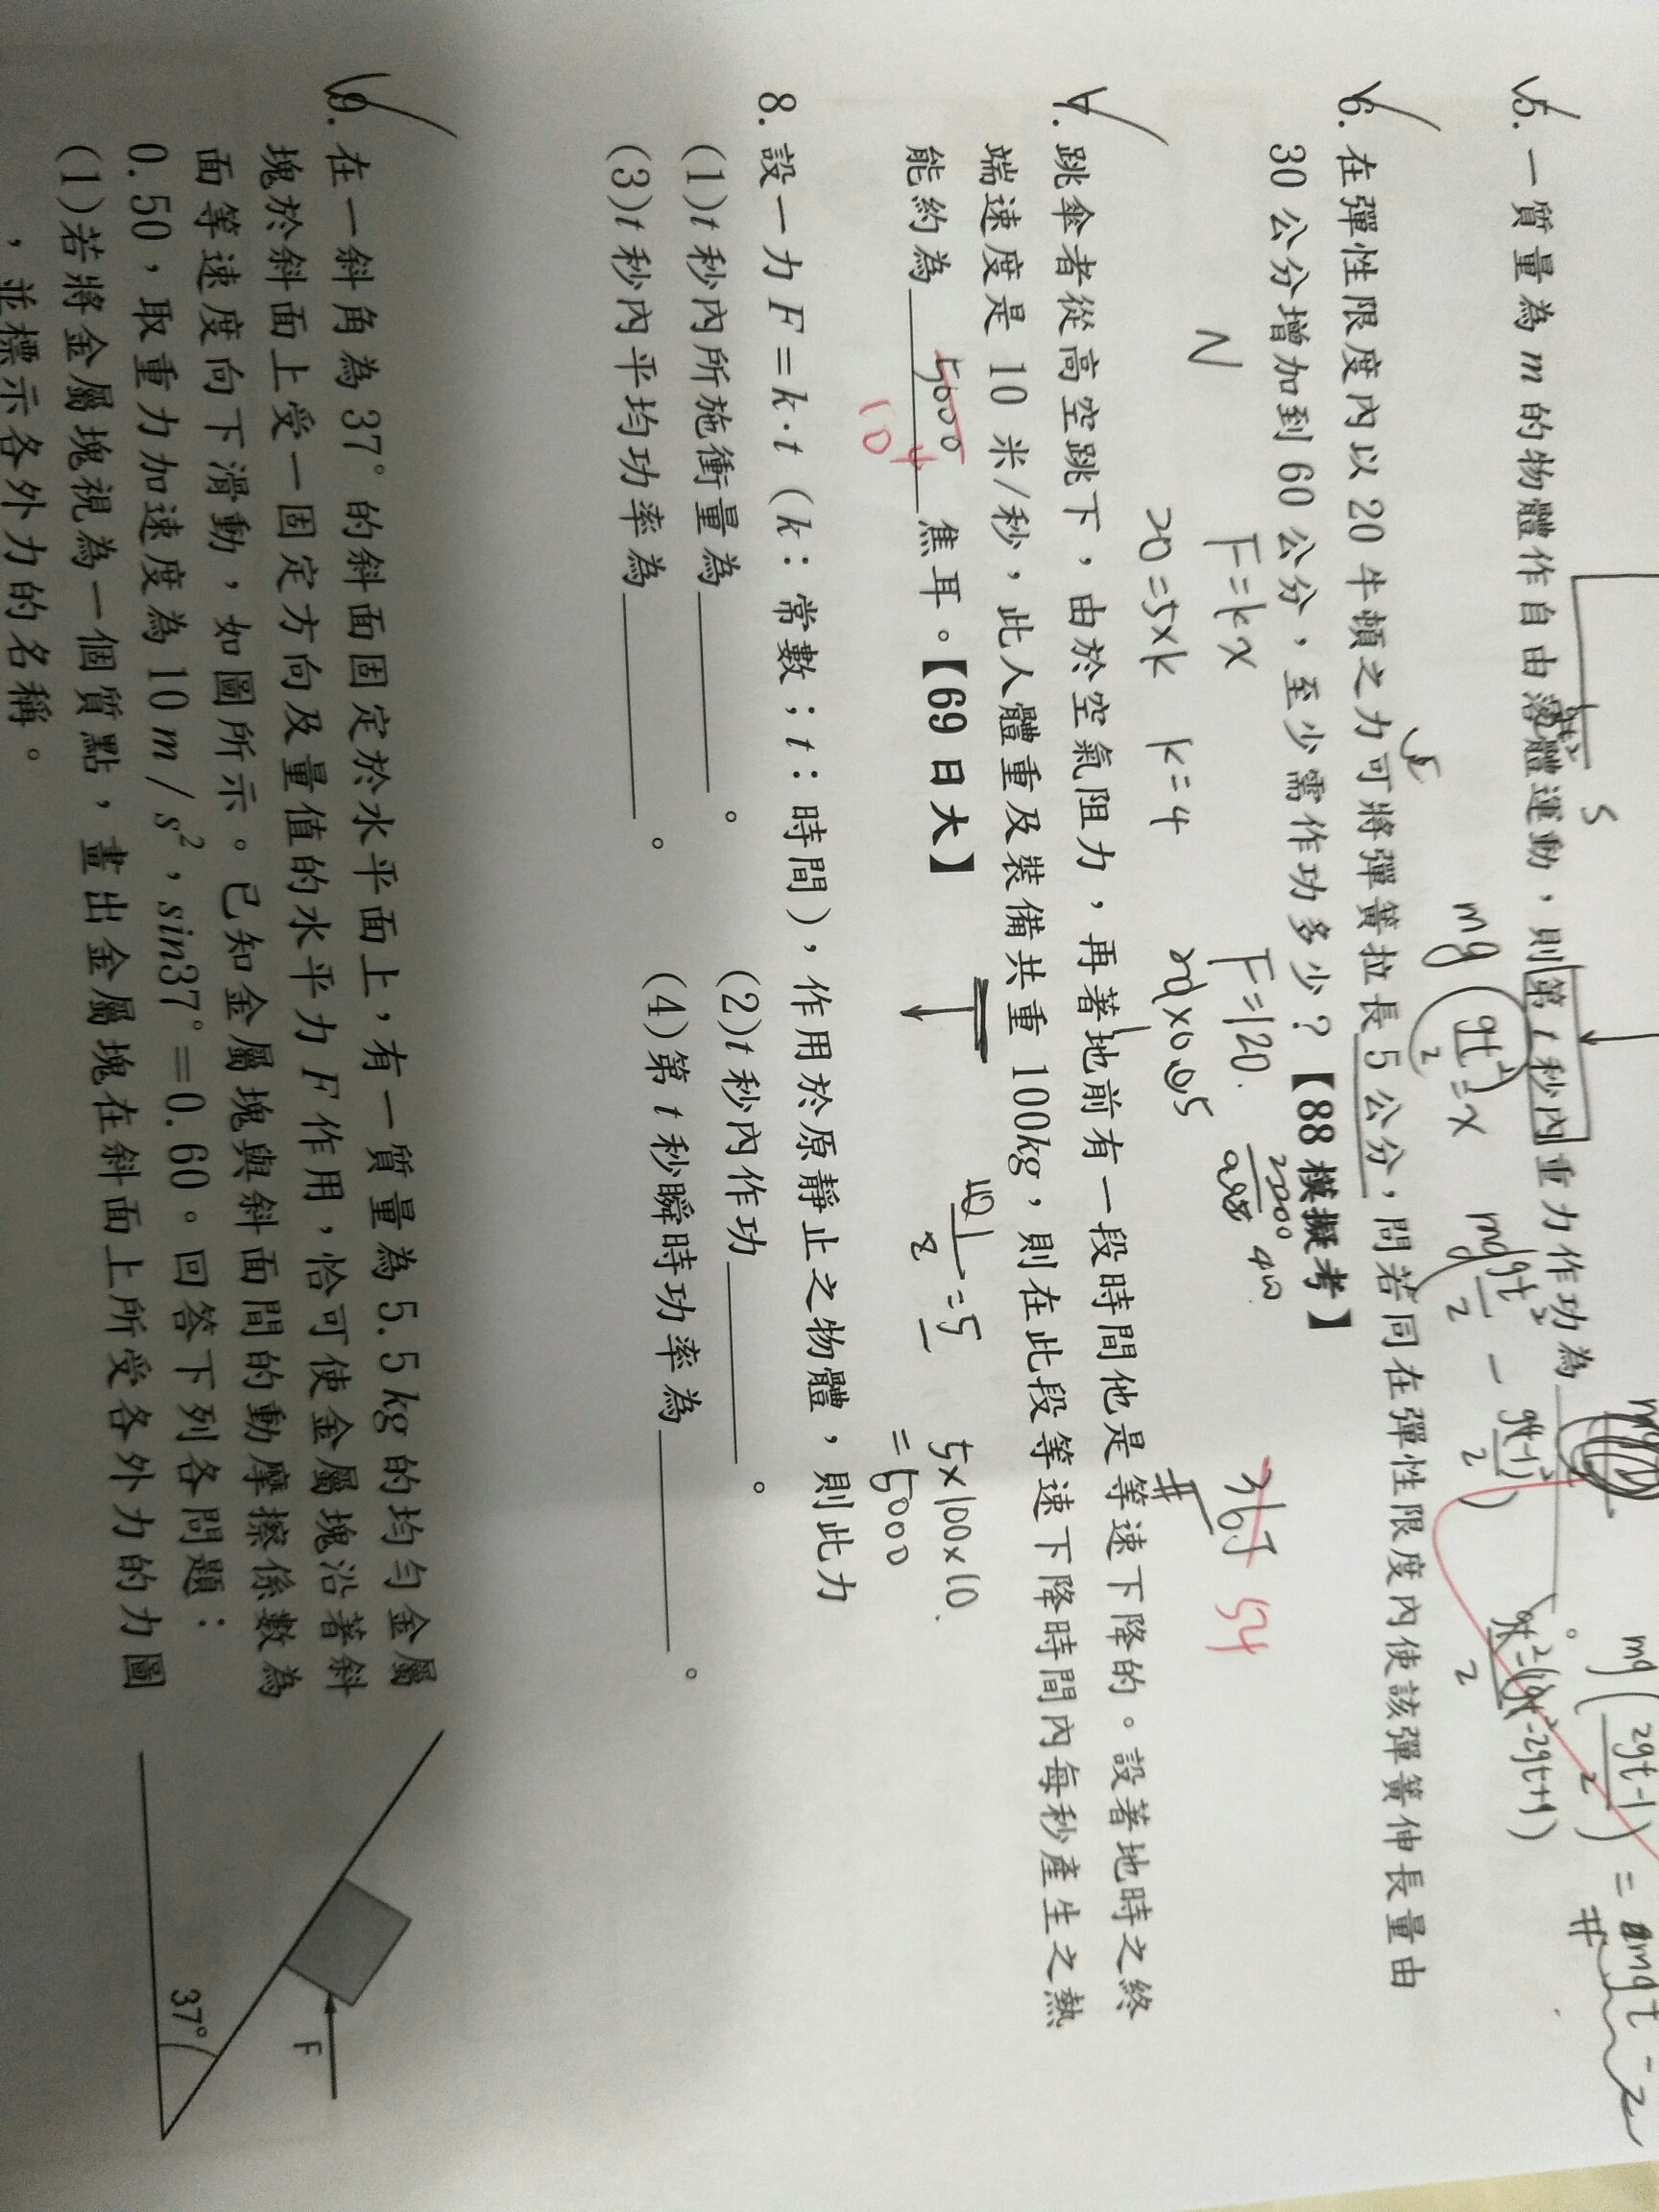 5. 一質量為 m 的物體作自由落體運動，則第 t 秒內重力作功為________。
mg(gt²/2)=x
6. 在彈性限度內以 20 牛頓之力可將彈簧拉長 5 公分，問若同在彈性限度內使該彈簧伸長量由
30 公分增加到 60 公分，至少需作功多少？【88 模擬考】
N
F=kx
F=120.
36J 54
20=5×k k=4
7. 跳傘者從高空跳下，由於空氣阻力，再著地前有一段時間他是等速下降的。設著地時之終
端速度是 10 米/秒，此人體重及裝備共重 100kg，則在此段等速下降時間內每秒產生之熱
能約為 5000 焦耳。【69 日大】
10⁴
5×100×10.
=5000
8. 設一力 F=k·t (k：常數；t：時間)，作用於原靜止之物體，則此力
(1)t 秒內所施衝量為________。 (2)t 秒內作功________。
(3)t 秒內平均功率為________。 (4)第 t 秒瞬時功率為________。
9. 在一斜角為 37° 的斜面固定於水平面上，有一質量為 5.5kg 的均勻金屬
塊於斜面上受一固定方向及量值的水平力 F 作用，恰可使金屬塊沿著斜
面等速度向下滑動，如圖所示。已知金屬塊與斜面間的動摩擦係數為
0.50，取重力加速度為 10 m / s²，sin37°=0.60。回答下列各問題：
(1)若將金屬塊視為一個質點，畫出金屬塊在斜面上所受各外力的力圖
，並標示各外力的名稱。
37°
F